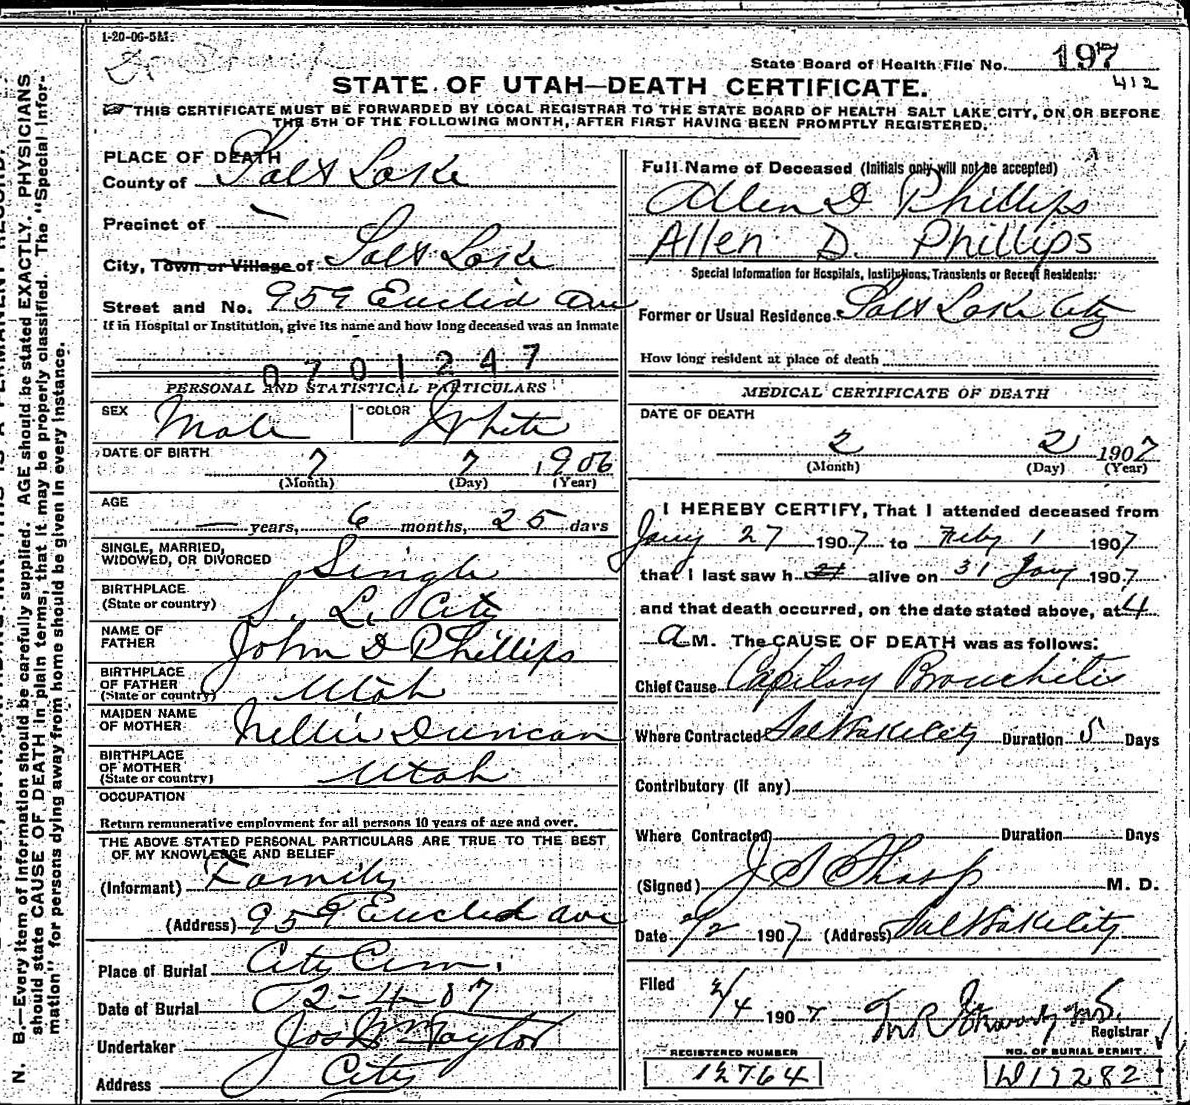 1-20-06-5M.
State Board of Health File No. 197
412
STATE OF UTAH—DEATH CERTIFICATE.
THIS CERTIFICATE MUST BE FORWARDED BY LOCAL REGISTRAR TO THE STATE BOARD OF HEALTH SALT LAKE CITY, ON OR BEFORE
THE 5TH OF THE FOLLOWING MONTH, AFTER FIRST HAVING BEEN PROMPTLY REGISTERED.
PLACE OF DEATH
County of Salt Lake
Precinct of —
City, Town or Village of Salt Lake
Street and No. 959 Euclid Ave
If in Hospital or Institution, give its name and how long deceased was an inmate
0701247
PERSONAL AND STATISTICAL PARTICULARS
SEX Male COLOR White
DATE OF BIRTH
7 7 1906
(Month) (Day) (Year)
AGE
— years, 6 months, 25 days
SINGLE, MARRIED,
WIDOWED, OR DIVORCED Single
BIRTHPLACE
(State or country) S. L. City
NAME OF
FATHER John D Phillips
BIRTHPLACE
OF FATHER
(State or country) Utah
MAIDEN NAME
OF MOTHER Nellie Duncan
BIRTHPLACE
OF MOTHER
(State or country) Utah
OCCUPATION
Return remunerative employment for all persons 10 years of age and over.
THE ABOVE STATED PERSONAL PARTICULARS ARE TRUE TO THE BEST
OF MY KNOWLEDGE AND BELIEF
(Informant) Family
(Address) 959 Euclid Ave
Place of Burial City Cem.
Date of Burial 2-4-07
Undertaker Jos Wm Taylor
Address City
Full Name of Deceased (Initials only will not be accepted)
Allen D. Phillips
Allen D. Phillips
Special Information for Hospitals, Institutions, Transients or Recent Residents:
Former or Usual Residence Salt Lake City
How long resident at place of death
MEDICAL CERTIFICATE OF DEATH
DATE OF DEATH
2 2 1907
(Month) (Day) (Year)
I HEREBY CERTIFY, That I attended deceased from
Jany 27 1907 to Feby 1 1907
that I last saw h alive on 31 Jany 1907
and that death occurred, on the date stated above, at 4
a M. The CAUSE OF DEATH was as follows:
Chief Cause Capilary Bronchitis
Where Contracted Salt Lake City Duration 5 Days
Contributory (if any)
Where Contracted Duration Days
(Signed) J S Sharp M. D.
Date 2/2 1907 (Address) Salt Lake City
Filed
2/4 1907
Registrar
REGISTERED NUMBER
12764
NO. OF BURIAL PERMIT.
D17282
N. B.—Every item of information should be carefully supplied. AGE should be stated EXACTLY. PHYSICIANS
should state CAUSE OF DEATH in plain terms, that it may be properly classified. The "Special Infor-
mation" for persons dying away from home should be given in every instance.